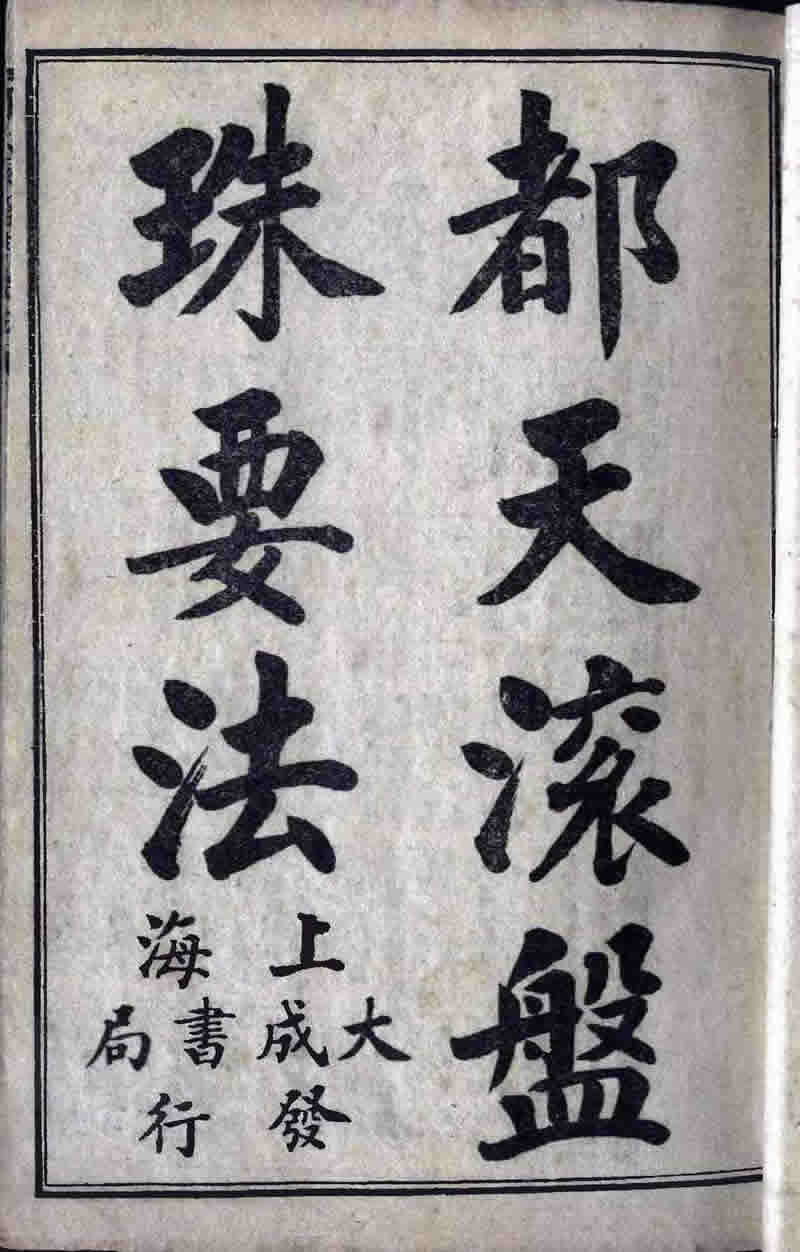 都天滾盤
珠要法
上海
大成書局
發行